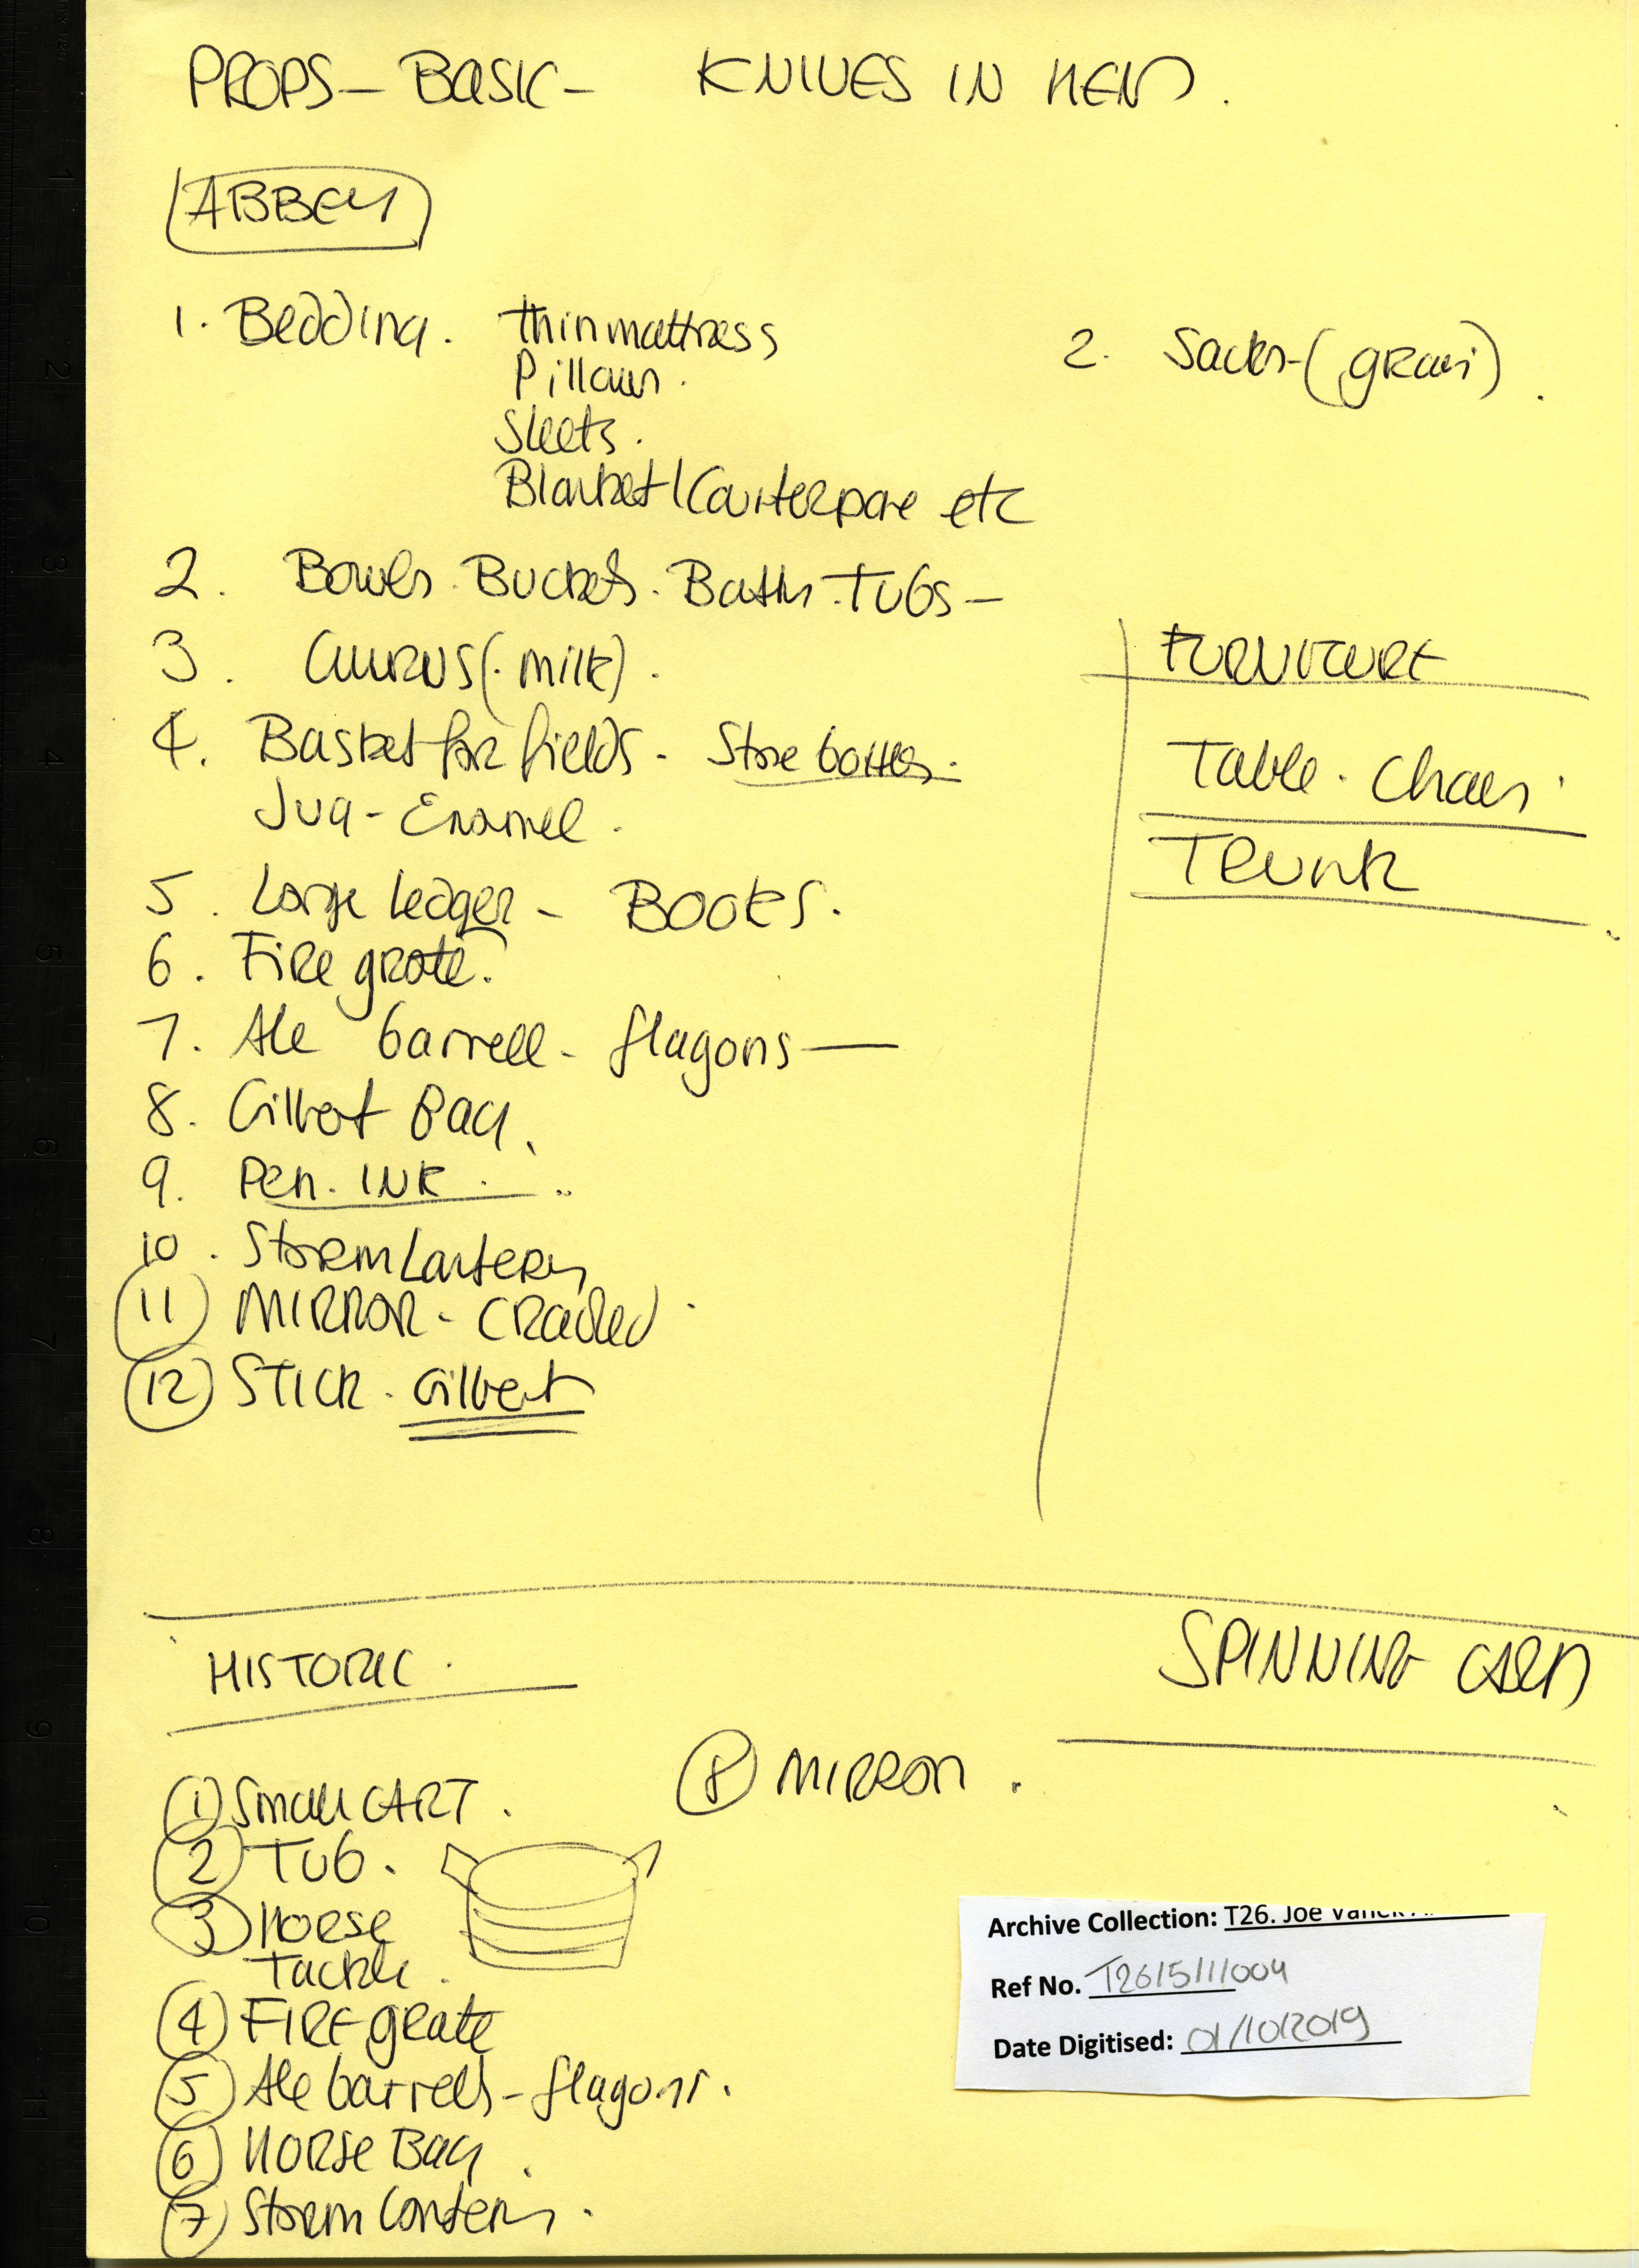 PROPS - BASIC - KNIVES IN HENS.
ABBEY
1. Bedding. thin mattress
Pillows.
Sheets.
Blanket/Counterpane etc
2. Sacks - (grain).
2. Bowls. Buckets. Baths. Tubs -
3. Churns (milk).
4. Basket for fields - Stone bottles.
Jug - Enamel.
5. Large ledger - Books.
6. Fire grate.
7. Ale barrell - flagons -
8. Gilbert Bag.
9. Pen. INK.
10. Storm Lantern
11 MIRROR - CRACKED.
12 STICK. Gilbert
FURNITURE
Table. Chairs.
Trunk
HISTORIC.
SPINNING CARD
1 Small CART.
2 Tub.
3 Horse
Tackle.
4 Fire grate
5 Ale barrells - flagons.
6 Horse Bag.
7 Storm Lantern.
8 MIRROR.
Archive Collection: T26. Joe Vanek
Ref No. T26/5/1/004
Date Digitised: 01/10/2019